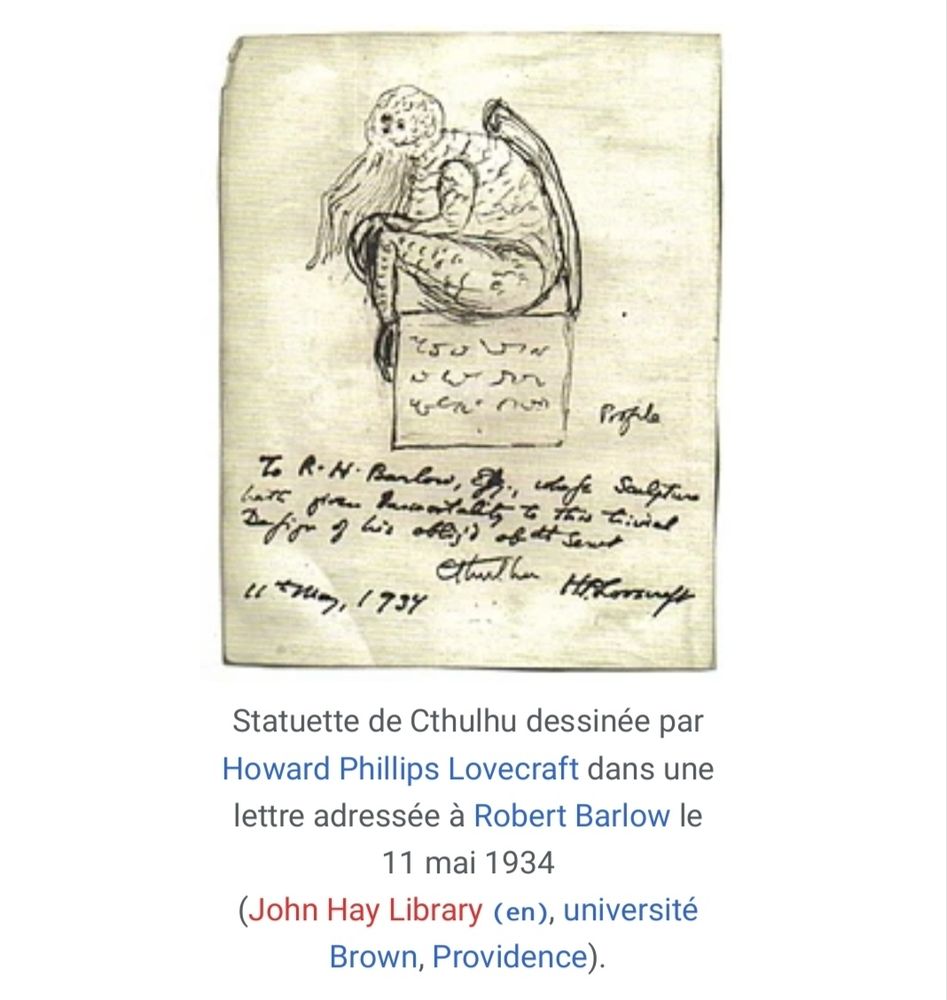 Profile
To R. H. Barlow, Esq., whose Sculpture
hath given Immortality to this trivial
Design of his oblig'd obdt Servt
Cthulhu HPLovecraft
11th May, 1934
Statuette de Cthulhu dessinée par
Howard Phillips Lovecraft dans une
lettre adressée à Robert Barlow le
11 mai 1934
(John Hay Library (en), université
Brown, Providence).